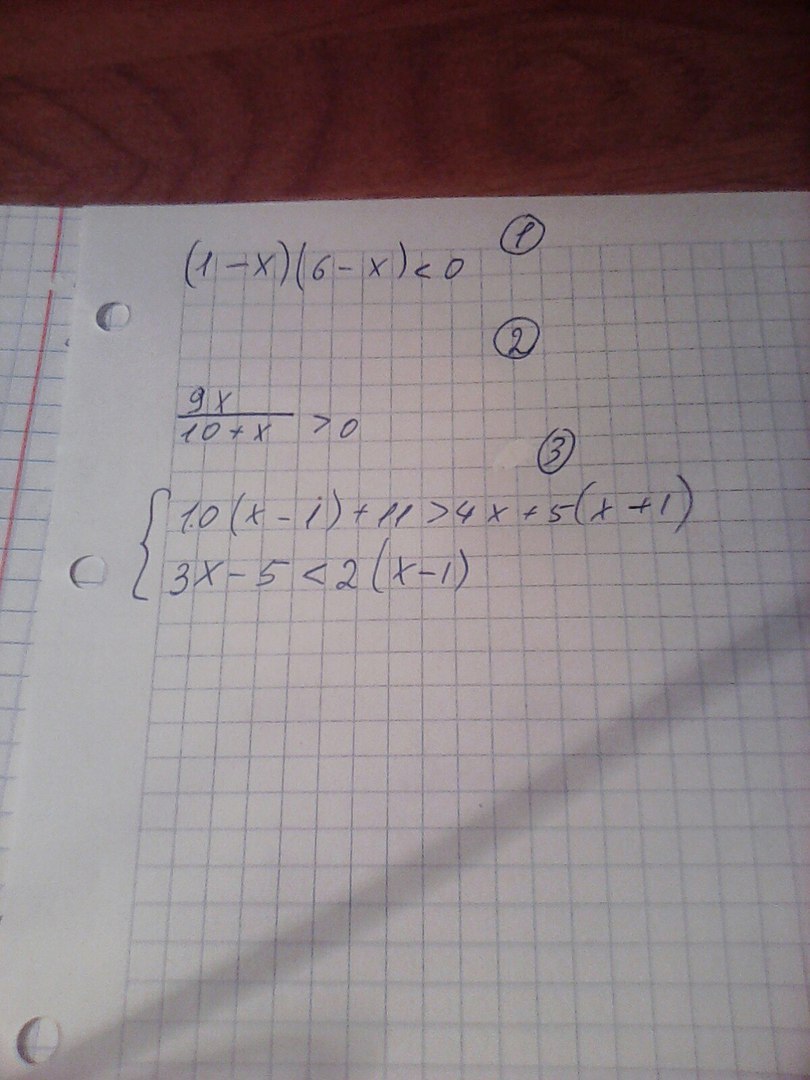 (1-x)(6-x)<0 ①
②
9x
10+x >0
③
{ 10(x-1)+11>4x+5(x+1)
3x-5<2(x-1)